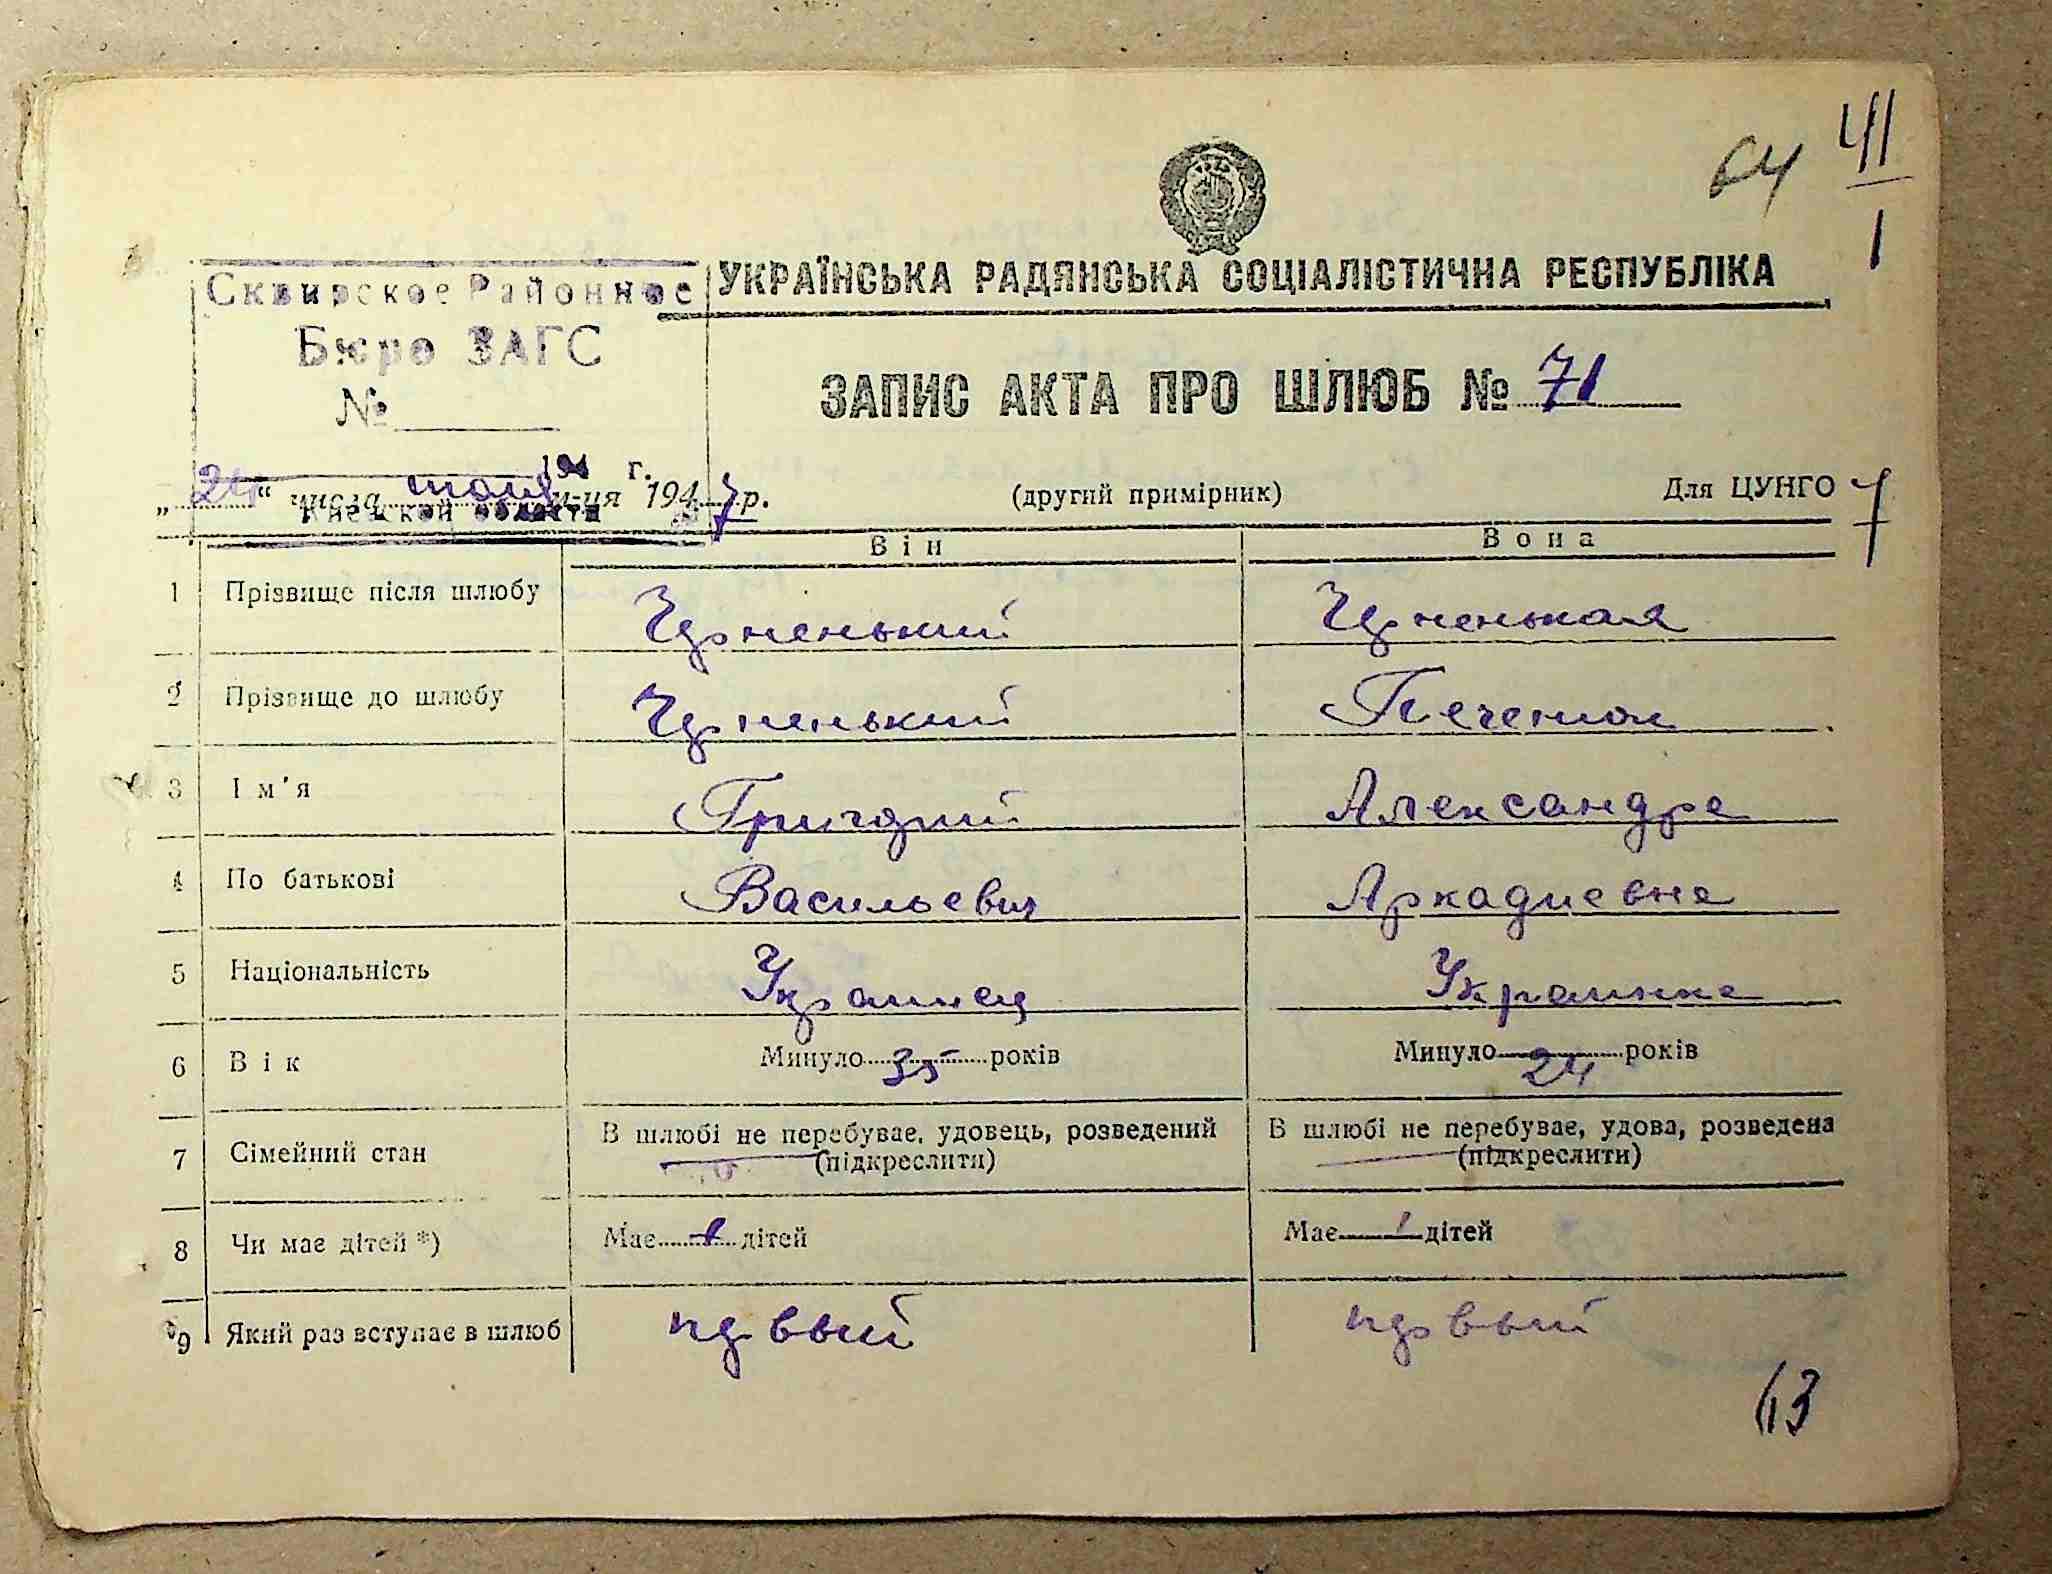 64 41
1
Сквирское Районное
Бюро ЗАГС
№
194 г.
Киевской области
УКРАЇНСЬКА РАДЯНСЬКА СОЦІАЛІСТИЧНА РЕСПУБЛІКА
ЗАПИС АКТА ПРО ШЛЮБ № 71
„24“ числа м-ця 1947 р. (другий примірник) Для ЦУНГО 7
Він Вона
1 Прізвище після шлюбу Черненький Черненькая
2 Прізвище до шлюбу Черненький Печенюк
3 Ім'я Григорий Александра
4 По батькові Васильевич Аркадиевна
5 Національність Украинец Украинка
6 Вік Минуло 35 років Минуло 24 років
7 Сімейний стан В шлюбі не перебуває, удовець, розведений (підкреслити) В шлюбі не перебуває, удова, розведена (підкреслити)
8 Чи має дітей *) Має дітей Має дітей
9 Який раз вступає в шлюб первый первый
63